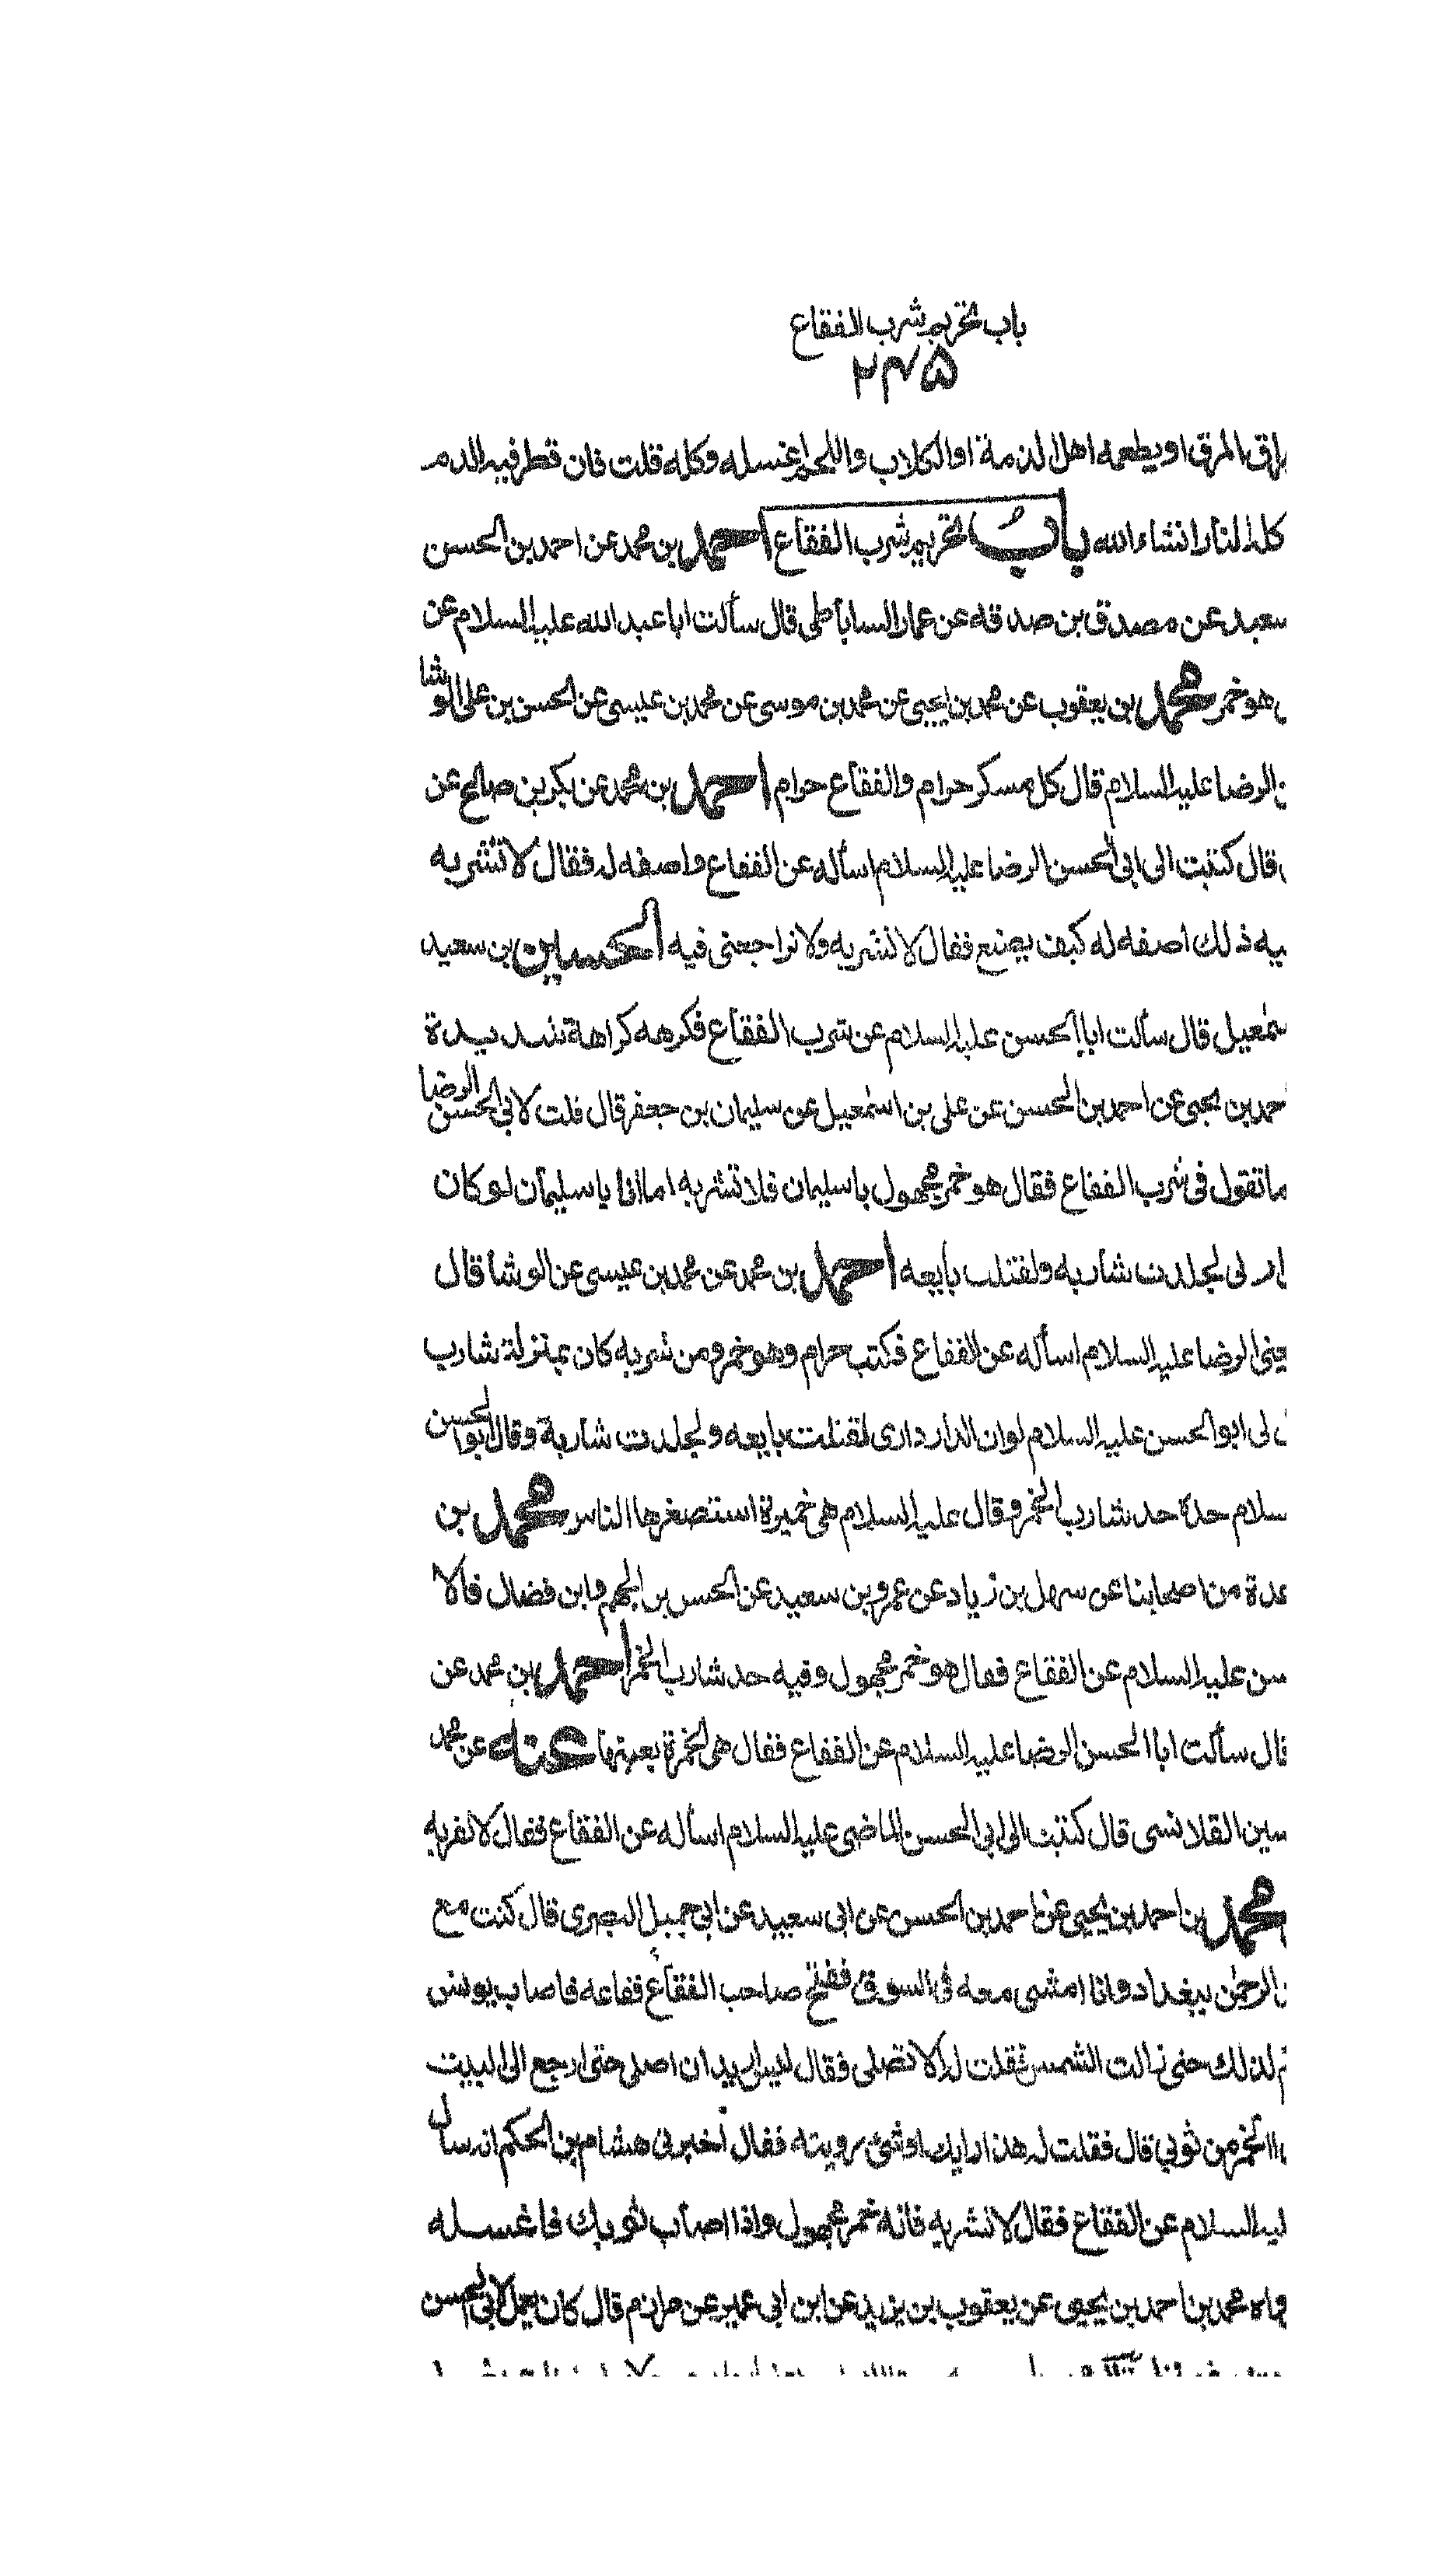 باب تحريم شرب الفقاع
٢٣٥
يهراق المرق او يطعمه اهل الذمة او الكلاب واللحم اغسله وكله قلت فان قطر فيه الدم
كله النار انشاء الله باب تحريم شرب الفقاع احمد بن محمد عن احمد بن الحسن
سعيد عن مصدق بن صدقه عن عمار الساباطى قال سألت ابا عبد الله عليه السلام عن
هو خمر محمد بن يعقوب عن محمد بن يحيى عن محمد بن موسى عن محمد بن عيسى عن الحسن بن على الوشا
الرضا عليه السلام قال كل مسكر حرام والفقاع حرام احمد بن محمد عن بكر بن صالح عن
قال كتبت الى ابى الحسن الرضا عليه السلام اسأله عن الفقاع واصفه له فقال لا تشربه
ذلك اصفه له كيف يصنع فقال لا تشربه ولا تراجعنى فيه الحسين بن سعيد
سمعيل قال سألت ابا الحسن عليه السلام عن شرب الفقاع فكرهه كراهة شديدة
حمد بن يحيى عن احمد بن الحسن عن على بن اسمعيل عن سليمان بن جعفر قال قلت لابى الحسن الرضا
ما تقول فى شرب الفقاع فقال هو خمر مجهول يا سليمان فلا تشربه اما انا يا سليمان لو كان
لى لجلدت شاربه ولقتلت بايعه احمد بن محمد عن محمد بن عيسى عن الوشا قال
يعنى الرضا عليه السلام اسأله عن الفقاع فكتب حرام وهو خمر ومن شربه كان بمنزلة شارب
لى ابو الحسن عليه السلام لو ان الدار دارى لقتلت بايعه ولجلدت شاربه وقال ابو الحسن
سلام حده حد شارب الخمر وقال عليه السلام هى خميرة استصغرها الناس محمد بن
عدة من اصحابنا عن سهل بن زياد عن عمرو بن سعيد عن الحسن بن الجهم وابن فضال قالا
سن عليه السلام عن الفقاع فقال هو خمر مجهول وفيه حد شارب الخمر احمد بن محمد عن
قال سألت ابا الحسن الرضا عليه السلام عن الفقاع فقال هى الخمرة بعينها عنه عن محمد
سين القلانسى قال كتبت الى ابى الحسن الماضى عليه السلام اسأله عن الفقاع فقال لا تقربه
محمد بن احمد بن يحيى عن احمد بن الحسن عن ابى سعيد عن ابى جميل البصرى قال كنت مع
الرحمن ببغداد وانا امشى معه فى السوق ففتح صاحب الفقاع فقاعه فاصاب يونس
لذلك حتى زالت الشمس فقلت له الا تصلى فقال ليس اريد ان اصلى حتى ارجع الى البيت
الخمر من ثوبي قال فقلت له هذا رايك اوشئ رويته فقال اخبرنى هشام بن الحكم انه سأل
عليه السلام عن الفقاع فقال لا تشربه فانه خمر مجهول واذا اصاب ثوبك فاغسله
رواه محمد بن احمد بن يحيى عن يعقوب بن يزيد عن ابن ابى عمير عن مرازم قال كان يعمل لابى الحسن